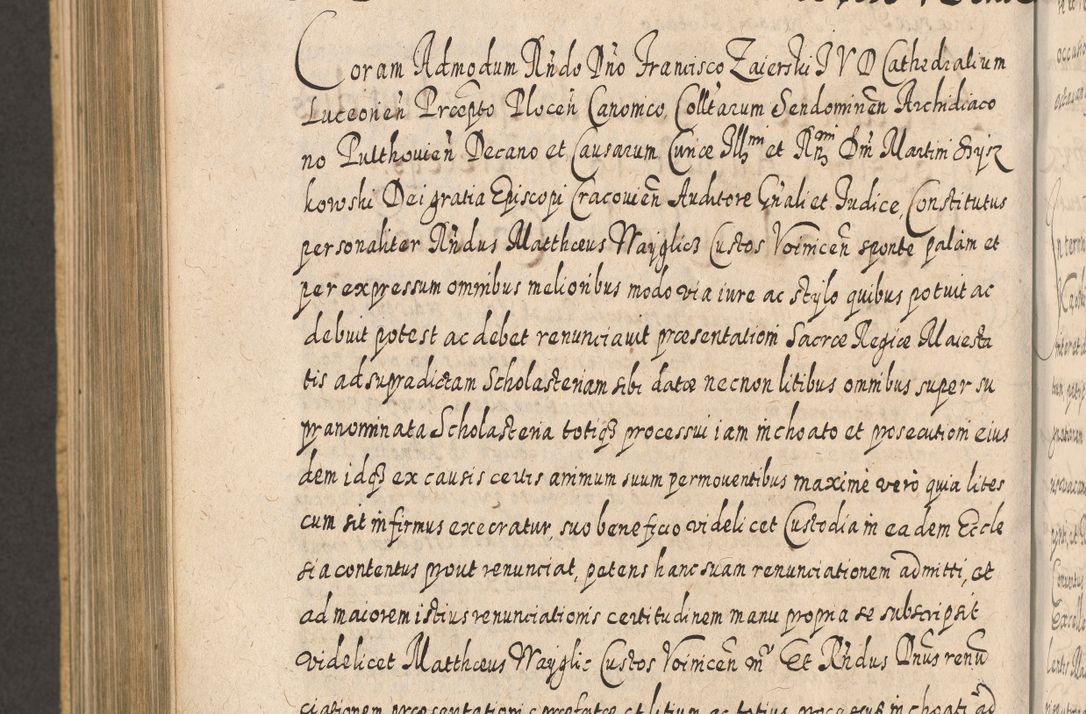 Coram Admodum Rn̄do Dn̄o Francisco Zaierski I V D Cathedralium
Luceonien̄ Prcep̄to Plocen̄ Canonico, Coll̄tarum Sendominen̄ Archidiaco
no Pulthouien̄ Decano et Causarum Curiæ Illmi et Rmi Dn̄i Martini Szysz
kowski Dei gratia Episcopi Cracouien̄ Auditore Gn̄ali et Iudice, Constitutus
personaliter Rn̄dus Matthæus Wayglicz Custos Voinicen̄ sponte palàm et
per expressum omnibus melioribus modo via iure ac stylo quibus potuit ac
debuit potest ac debet renunciauit præsentationi Sacræ Regiæ Maiesta
tis ad supradictam Scholasteriam sibi datæ necnon litibus omnibus super su
pranominata Scholasteria totiq3 processui iam inchoato et prosecutioni eius
dem idq3 ex causis certis animum suum permouentibus maximè verò quia lites
cum sit infirmus execratur, suo beneficio videlicet Custodia in eadem Eccle
sia contentus prout renunciat, petens hanc suam renunciationem admitti, et
ad maiorem istius renunciationis certitudinem manu propria se subscripsit
videlicet Matthæus Wayglic Custos Voinicen̄ mp Et Rn̄dus Dn̄us renū
ciationem præsentationis præfatæ et litium ac totius processus inchoati ad